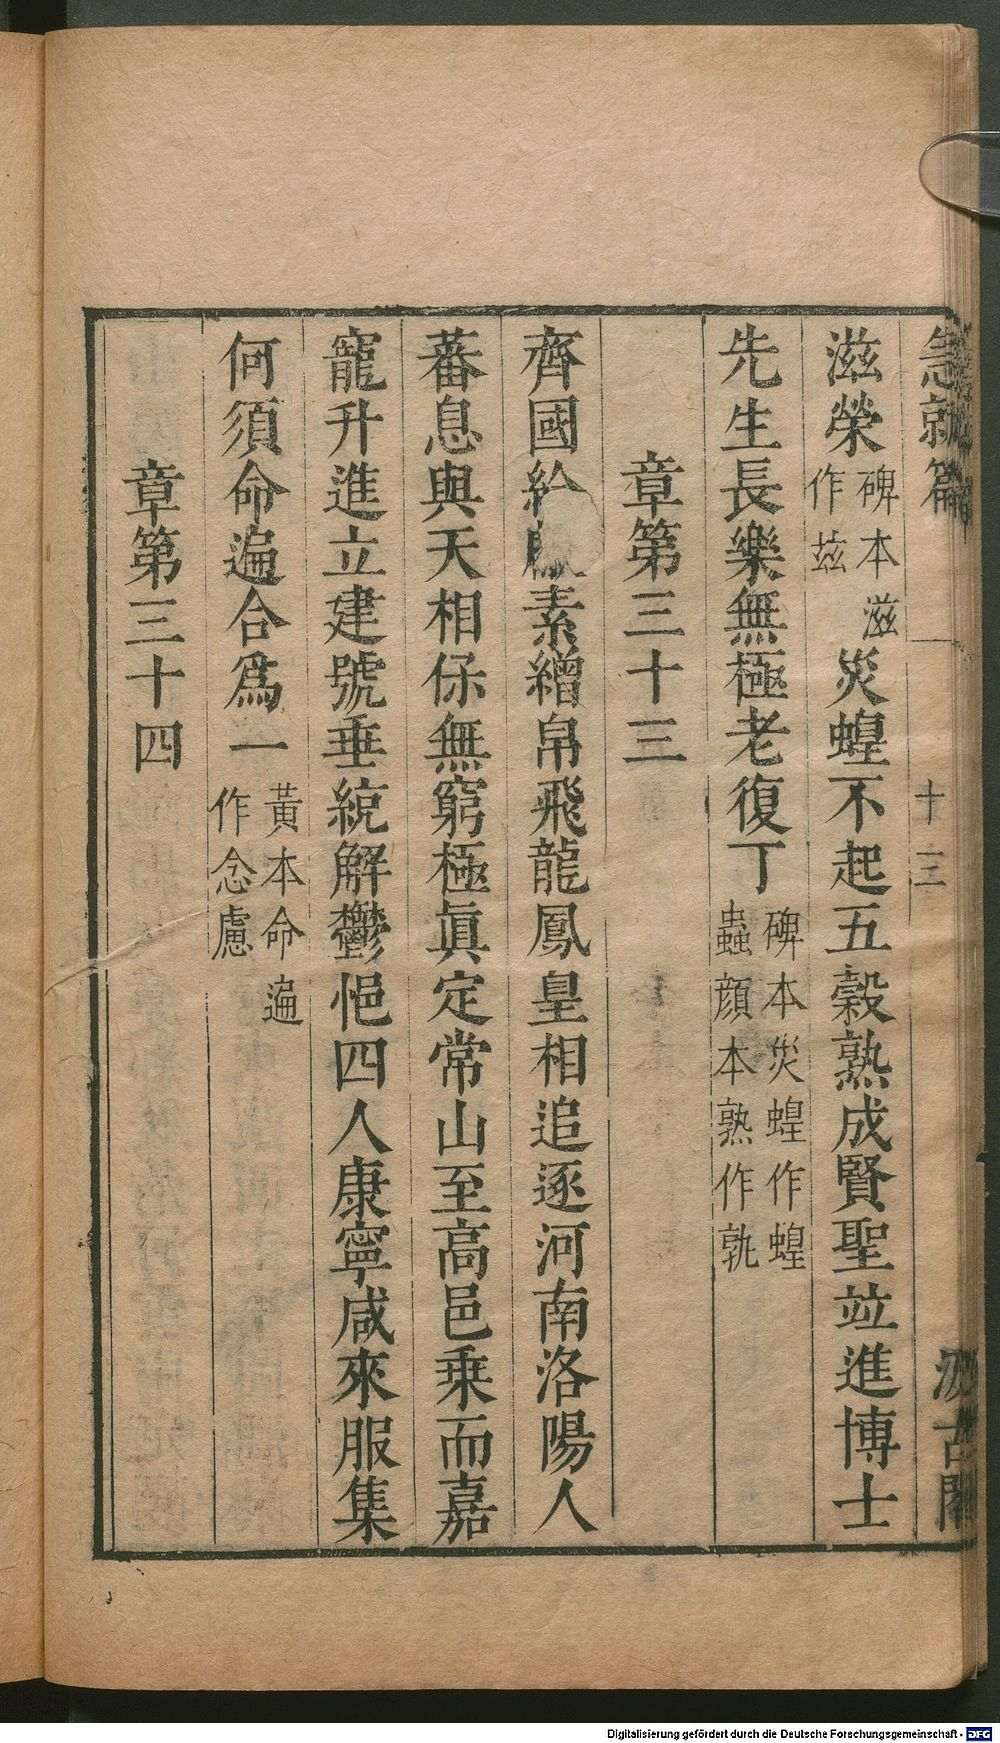 急就篇 十三 汲古閣
滋榮碑本滋作玆災蝗不起五穀熟成賢聖竝進博士
先生長樂無極老復丁碑本災蝗作蝗蟲顔本熟作孰
章第三十三
齊國給素繒帛飛龍鳳皇相追逐河南洛陽人
蕃息與天相保無窮極眞定常山至高邑乘而嘉
寵升進立建號垂統解鬱悒四人康寧咸來服集
何須命遍合爲一黃本命遍作念慮
章第三十四
Digitalisierung gefördert durch die Deutsche Forschungsgemeinschaft - DFG